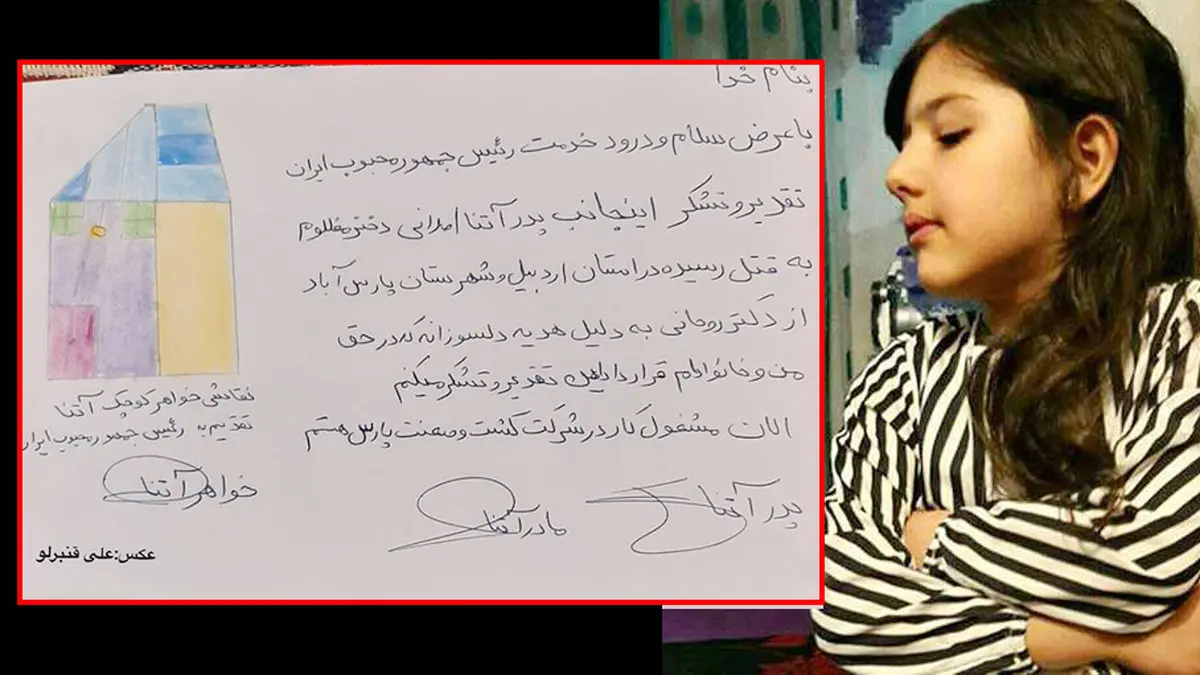 بنام خدا
با عرض سلام و درود خدمت رئیس جمهور محبوب ایران
تقدیر و تشکر اینجانب پدر آتنا اصلانی دختر مظلوم
به قتل رسیده در استان اردبیل و شهرستان پارس آباد
از دکتر روحانی به دلیل هدیه دلسوزانه که در حق
من و خانواده‌ام قرار داده‌اند تقدیر و تشکر میکنم
الان مشغول کار در شرکت کشت و صنعت پارس هستم
پدر آتنا
مادر آتنا
نقاشی خواهر کوچک آتنا
تقدیم به رئیس جمهور محبوب ایران
خواهر آتنا
عکس:علی قنبرلو